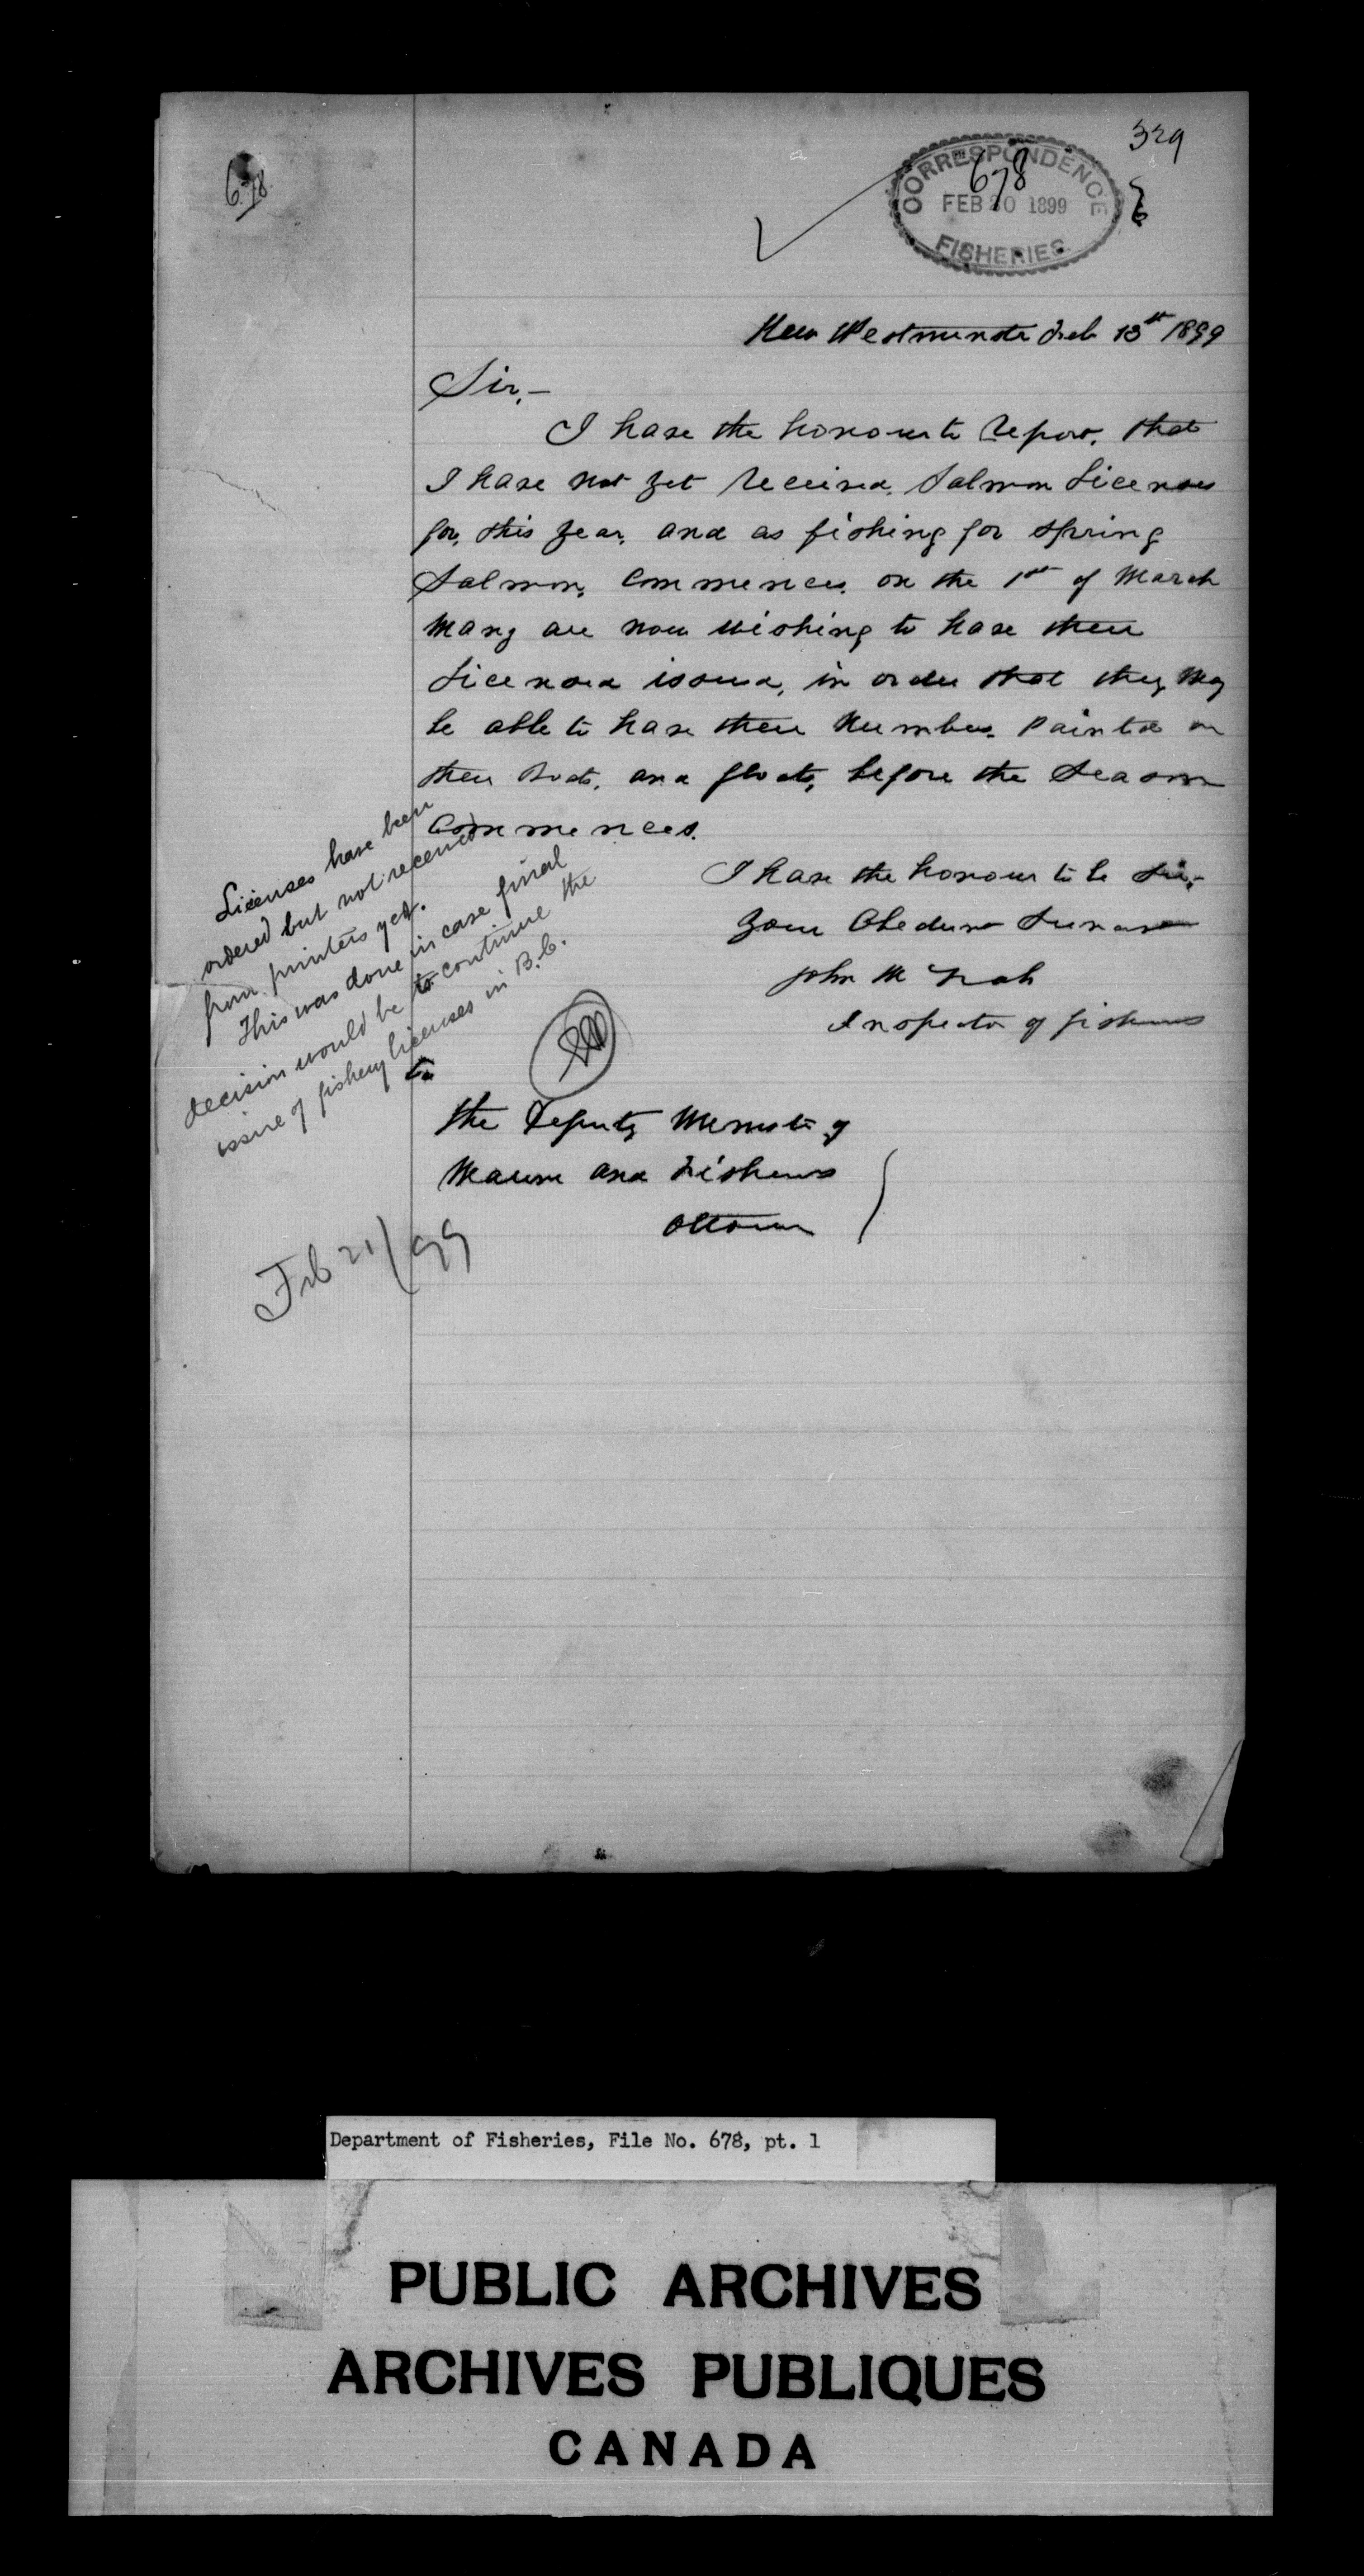 329
678
CORRESPONDENCE
678
FEB 20 1899
FISHERIES
New Westminster Feb 13th 1899
Sir,—
I have the honour to report, that
I have not yet received, Salmon Licenses
for, this year, and as fishing for spring
Salmon, commences, on the 1st of March
Many are now wishing to have their
Licenses issued, in order that they may
be able to have their Numbers Painted on
their Boats, and floats, before the Season
Commences.
I have the honour to be Sir,-
Your Obedient Servant
John M
Inspector of fisheries
to
the Deputy Minister of
Marine and Fisheries
Ottawa
Licenses have been
ordered but not received
from printers yet.
This was done in case final
decision would be to continue the
issue of fishery licenses in B.C.
Feb 21/99
Department of Fisheries, File No. 678, pt. 1
PUBLIC ARCHIVES
ARCHIVES PUBLIQUES
CANADA